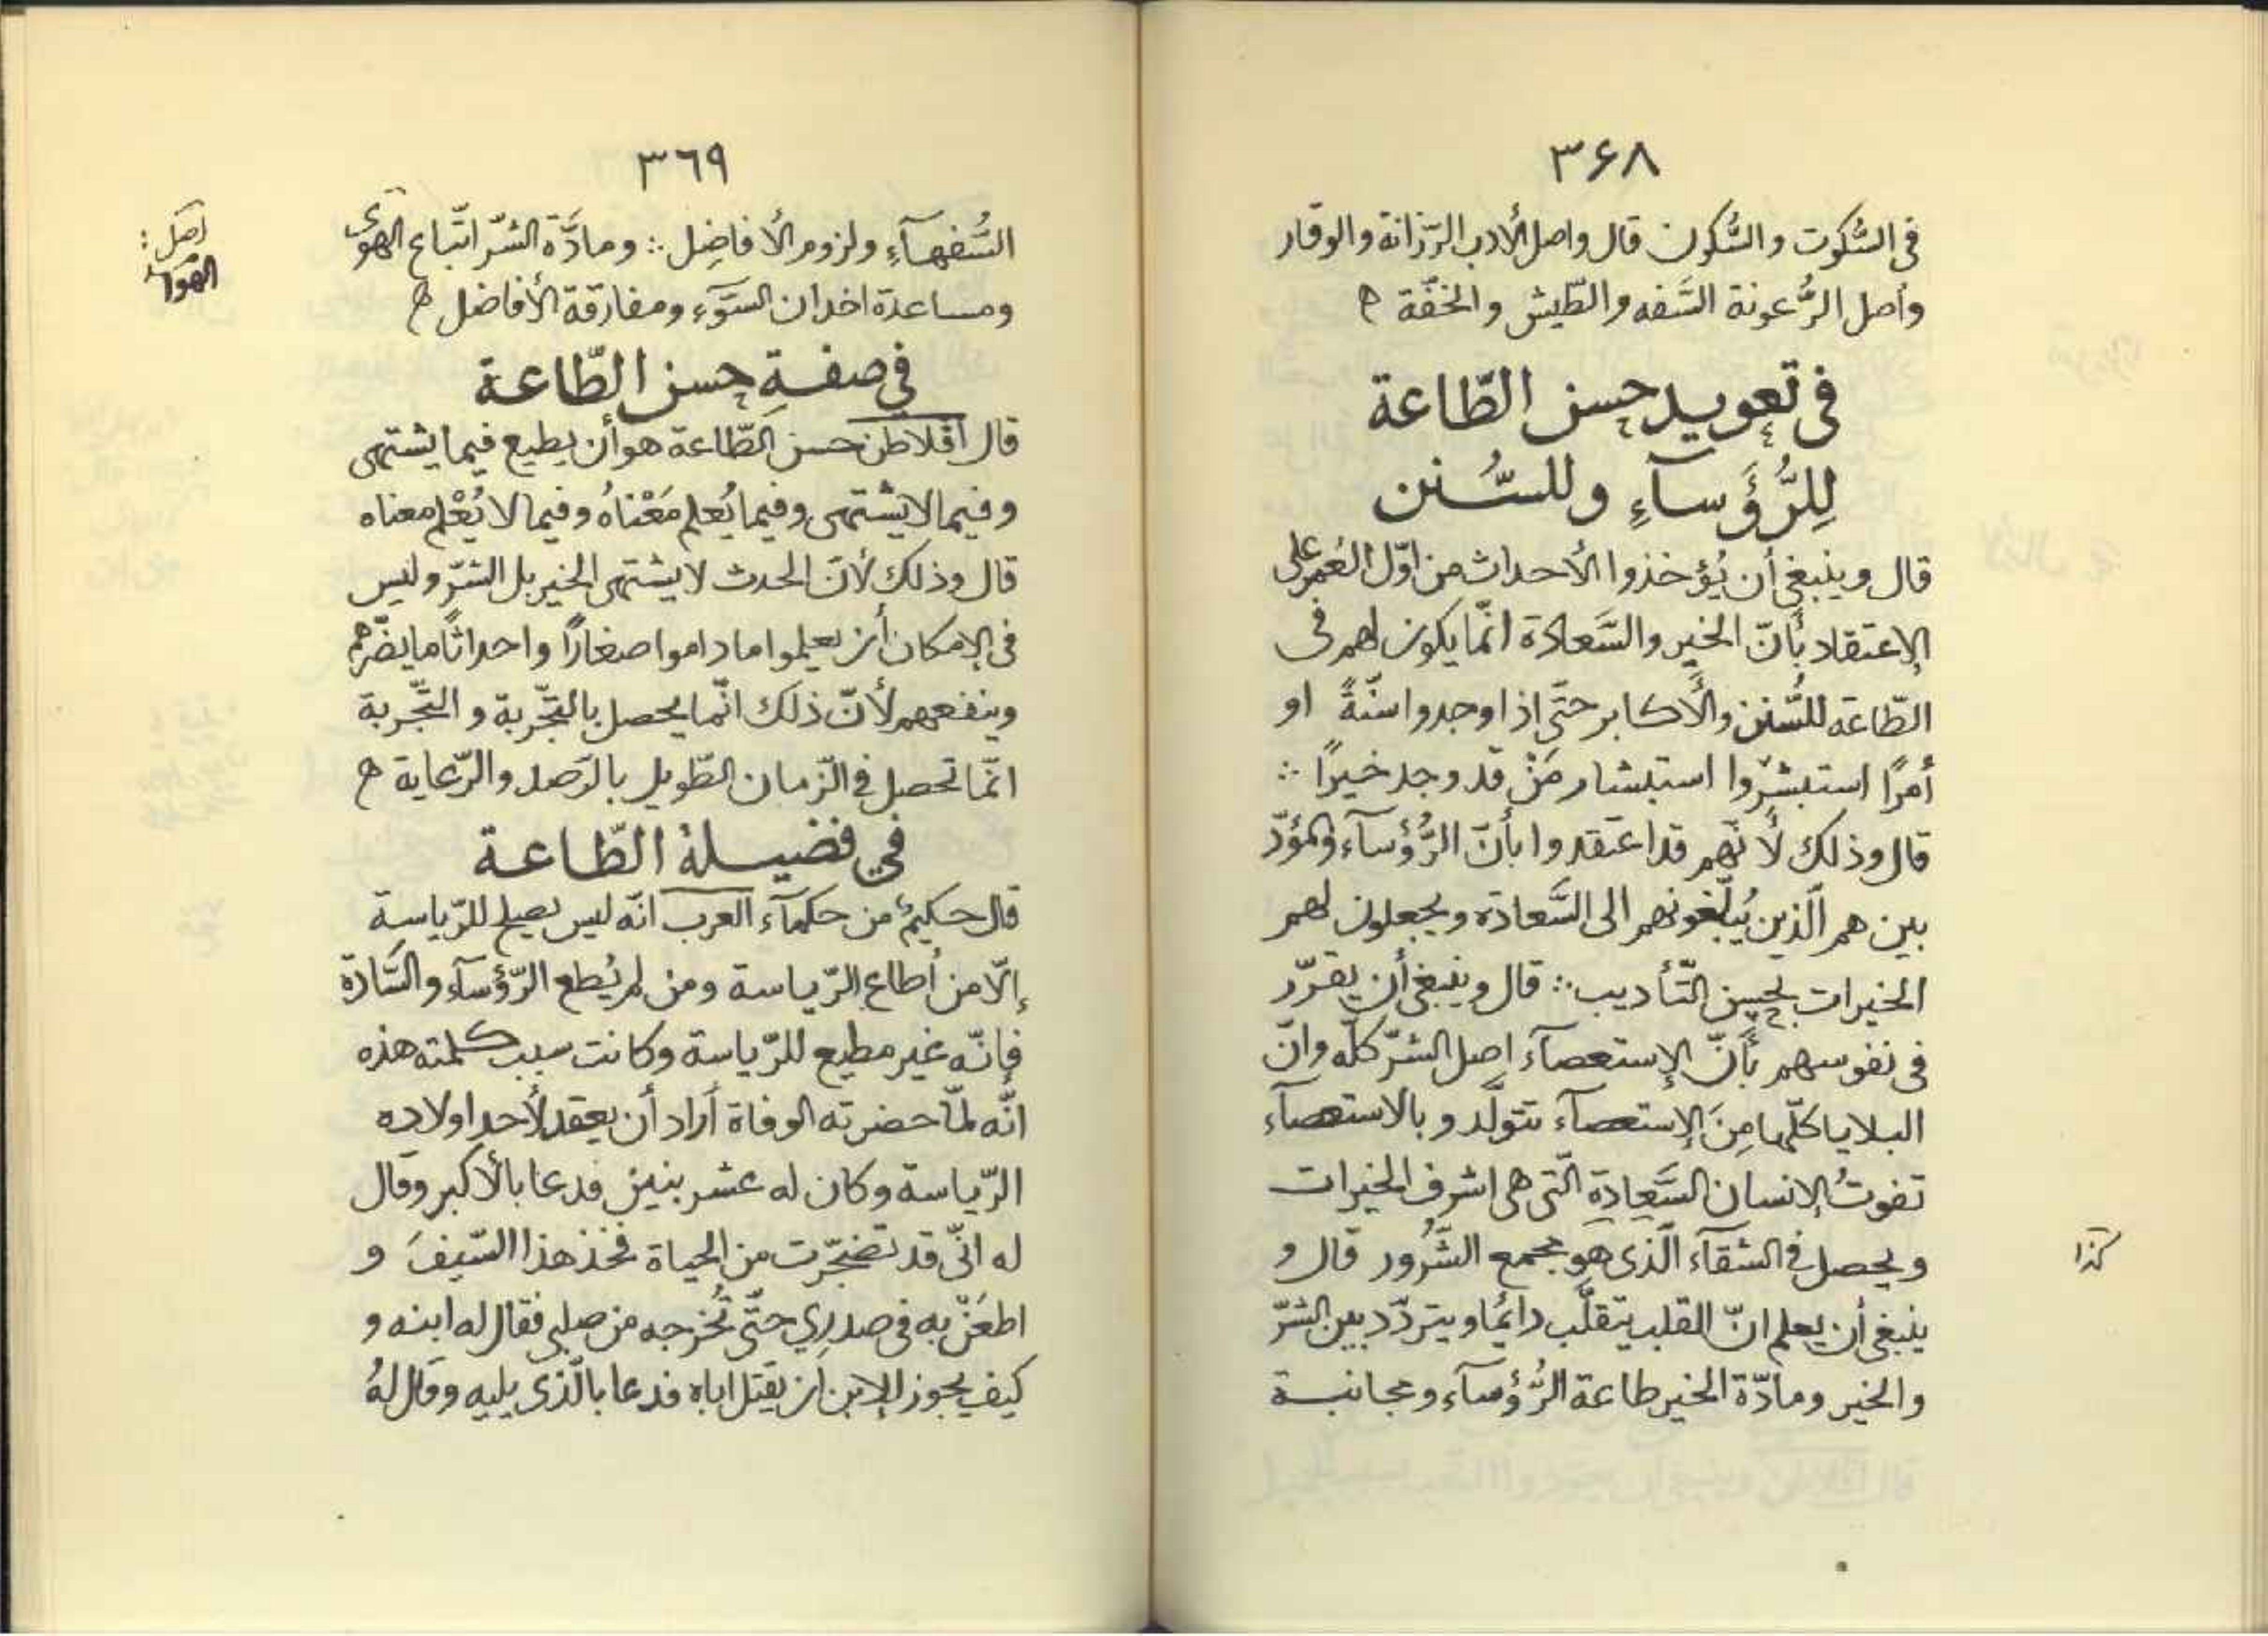 ٣٦٨
فى السُّكوت والسُّكون قال واصل الأدب الرّزانة والوقار
وأصل الرُّعونة السَّفه والطّيش والخفّة ه
فى تعويد حسن الطّاعة
لِلرُّؤَسآءِ وللسُّنن
قال وينبغى أن يُؤخذوا الأحداث من اوّل العُمر على
الإعتقاد بأنّ الخير والسَّعادة انّما يكون لهم فى
الطّاعة للسُّنن والأكابر حتّى إذا وجدوا سنّةً او
أمرًا استبشرّوا استبشار مَنْ قد وجد خيرًا ∴
قال وذلك لأنّهم قد اعتقدوا بأنّ الرُّؤسآء والمؤدّ
بين هم الّذين يُبلّغونهم الى السَّعادة ويجعلون لهم
الخيرات بحسن التّأديب ∴ قال وينبغى أن يقرّر
فى نفوسهم بأنّ الإستعصآء اصل الشرّ كلّه وانّ
البلايا كلّها مِنَ الإستعصآء تتولّد وبالاستعصآء
تفوتُ الإنسان السَّعادة الّتى هى اشرف الخيرات
ويحصل فى الشقآء الّذى هو مجمع الشُّرور قال و
كذا
ينبغى أن يعلم انّ القلب يتقلَّب دائمًا ويتردّد بين الشرّ
والخير ومادّة الخير طاعة الرُّؤسآء ومجانبة
٣٦٩
السُّفهآءِ ولزوم الأفاضِل ∴ ومادَّة الشرّ اتّباع الهوى
اصل :
الهوا
ومساعدة اخدان السَّوء ومفارقة الأفاضل ه
فى صفةِ حسن الطّاعة
قال افلاطن حسن الطّاعة هو أن يطيع فيما يشتهى
وفيما لا يشتهى وفيما يُعلم مَعْناهُ وفيما لا يُعْلم معناه
قال وذلك لأنّ الحدث لا يشتهى الخير بل الشرّ وليس
فى الإمكان أن يعلموا ما داموا صغارًا واحداثًا ما يضرّهم
وينفعهم لأنّ ذلك انّما يحصل بالتّجربة والتّجربة
انّما تحصل فى الزّمان الطّويل بالرّصد والرّعاية ه
في فضيلة الطّاعة
قال حكيمٌ من حكمآء العرب انّه ليس يصلح للرّياسة
إلّا من أطاع الرّياسة ومن لم يُطع الرّؤسآء والسَّادة
فإنّه غير مطيع للرّياسة وكانت سبب كلمته هذه
انّه لمّا حضرته الوفاة أراد أن يعقد لأحد اولاده
الرّياسة وكان له عشر بنين فدعا بالأكبر وقال
له انّى قد تضجّرت من الحياة فخذ هذا السّيفَ و
اطعَنْ به فى صدرِي حتّى تُخرجه من صلبى فقال له ابنه و
كيف يجوز للإبن أن يقتل اباه فدعا بالّذى يليه وقال لهُ